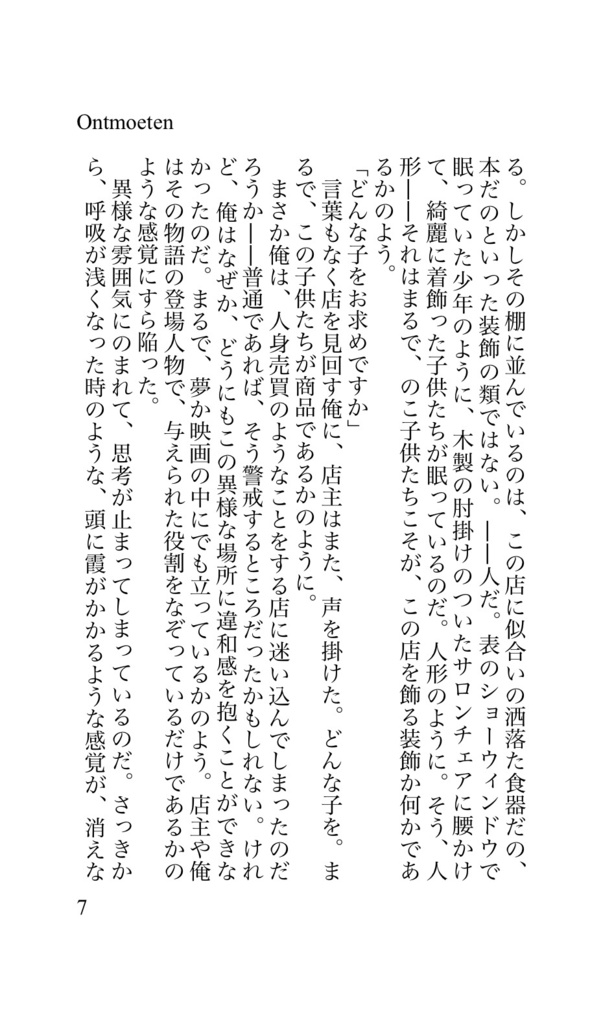 Ontmoeten
る。しかしその棚に並んでいるのは、この店に似合いの洒落た食器だの、
本だのといった装飾の類ではない。――人だ。表のショーウィンドウで
眠っていた少年のように、木製の肘掛けのついたサロンチェアに腰かけ
て、綺麗に着飾った子供たちが眠っているのだ。人形のように。そう、人
形――それはまるで、のこ子供たちこそが、この店を飾る装飾か何かであ
るかのよう。
「どんな子をお求めですか」
言葉もなく店を見回す俺に、店主はまた、声を掛けた。どんな子を。ま
るで、この子供たちが商品であるかのように。
まさか俺は、人身売買のようなことをする店に迷い込んでしまったのだ
ろうか――普通であれば、そう警戒するところだったかもしれない。けれ
ど、俺はなぜか、どうにもこの異様な場所に違和感を抱くことができな
かったのだ。まるで、夢か映画の中にでも立っているかのよう。店主や俺
はその物語の登場人物で、与えられた役割をなぞっているだけであるかの
ような感覚にすら陥った。
異様な雰囲気にのまれて、思考が止まってしまっているのだ。さっきか
ら、呼吸が浅くなった時のような、頭に霞がかかるような感覚が、消えな
7